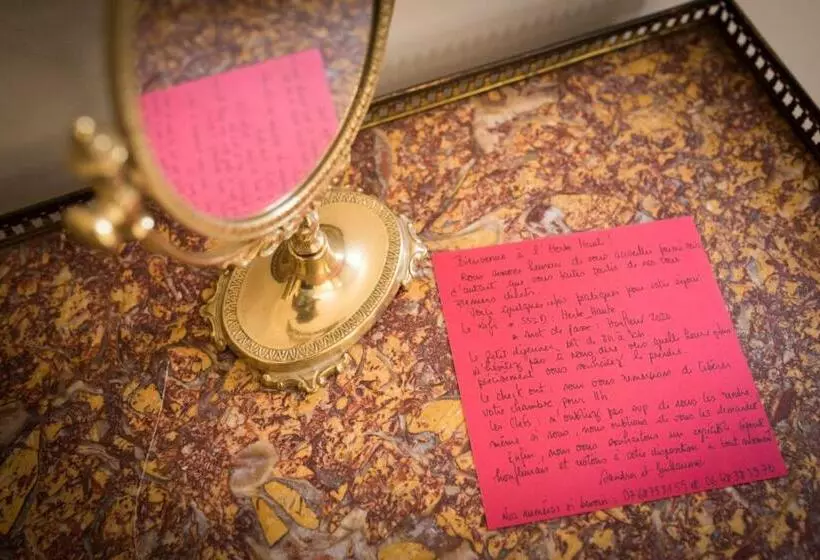 Bienvenue à l'Herbe Haute!
Nous sommes heureux de vous accueillir parmi nous
d'autant que vous faites partie de nos tous
premiers clients.
Voici quelques infos pratiques pour votre séjour
Le wifi * SSID : Herbe Haute
* mot de passe : Honfleur
Le Petit déjeuner, est de 8h à
n'hésitez pas à nous dire vers quelle heure
vous souhaitez le prendre.
Le check out : nous vous remercions de libérer
votre chambre pour 11h
Les clefs : n'oubliez pas svp de nous les rendre,
même si nous, nous oublions de vous les demander
Enfin, nous vous souhaitons un excellent séjour
honfleurais et restons à votre disposition à tout moment
Sandra et Guillaume
Nos numéros si besoin : et